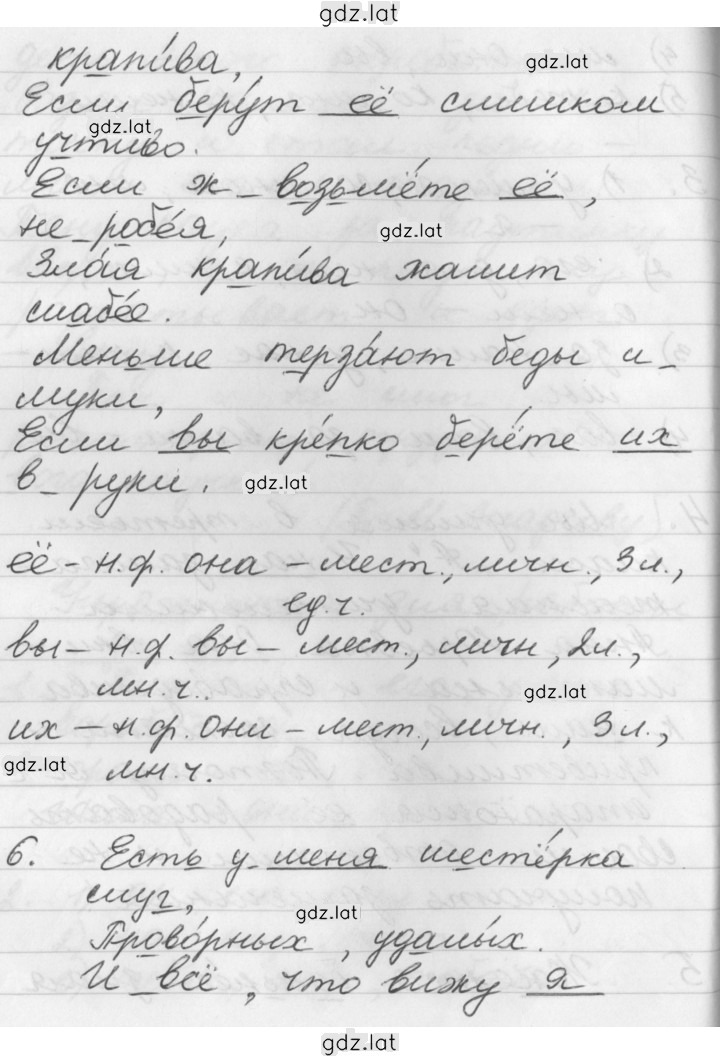 gdz.lat
крапи́ва,
gdz.lat
Если бeру́т её слишком
gdz.lat
учтиво.
Если ж возьмёте её,
не робе́я,
gdz.lat
Зла́я крапи́ва жалит
слабе́е.
Меньше терза́ют беды и
муки,
Если вы кре́пко берёте их
в руки.
gdz.lat
её - н.ф. она - мест., личн., 3 л.,
ед.ч.
вы - н.ф. вы - мест., личн, 2л.,
мн.ч..
gdz.lat
их - н.ф. они - мест., личн., 3 л.,
gdz.lat
мн.ч.
6. Есть у меня шестёрка
слуг,
gdz.lat
Прово́рных, удалы́х.
И всё, что вижу я
gdz.lat